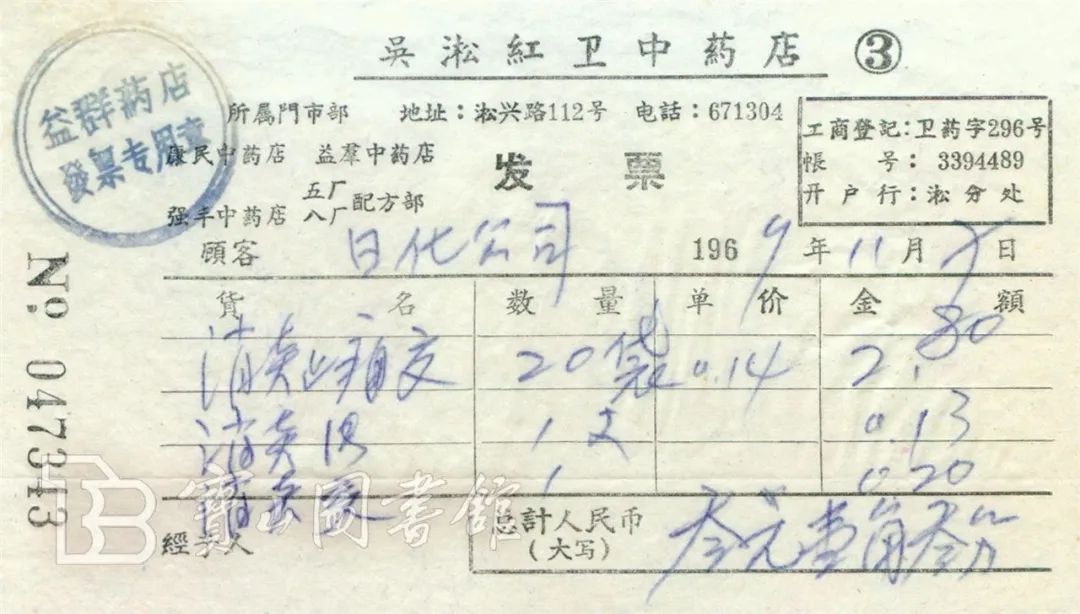 吳淞紅卫中葯店 ③
益群药店
發票专用章
所属門市部 地址：淞兴路112号 电話：671304
康民中葯店 益羣中葯店
强丰中葯店 五厂八厂配方部
发票
工商登記：卫葯字296号
帳号：3394489
开户行：淞分处
No. 047343
顧客 日化公司 1969年11月 日
貨名 数量 单价 金額
消炎止痛 20袋 0.14 2.80
消炎 1支 0.13
1 0.20
經手人
总計人民币（大写） 叁元壹角叁分
寶山圖書館